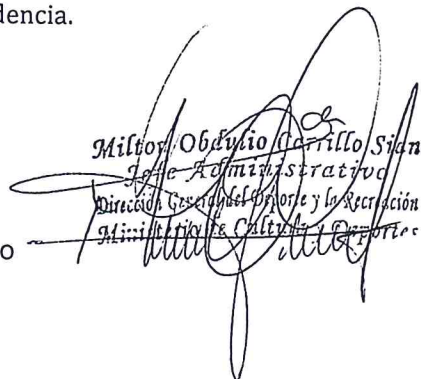 dencia.
Milton Obdulio Carrillo Sian
Jefe Administrativo
Dirección General del Deporte y la Recreación
Ministerio de Cultura y Deportes
o